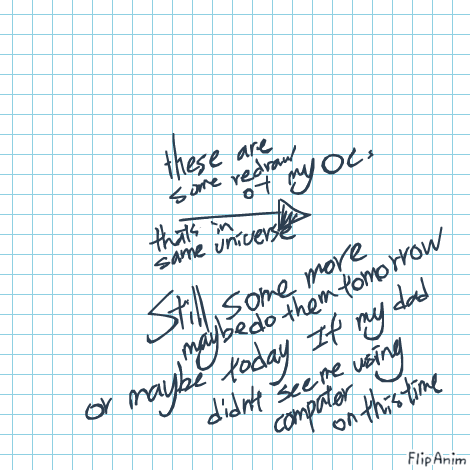 these are
some redraw
of my OCs
thats in
same universe
Still some more
maybe do them tomorrow
or maybe today If my dad
didn't see me using
computer
on this time
FlipAnim